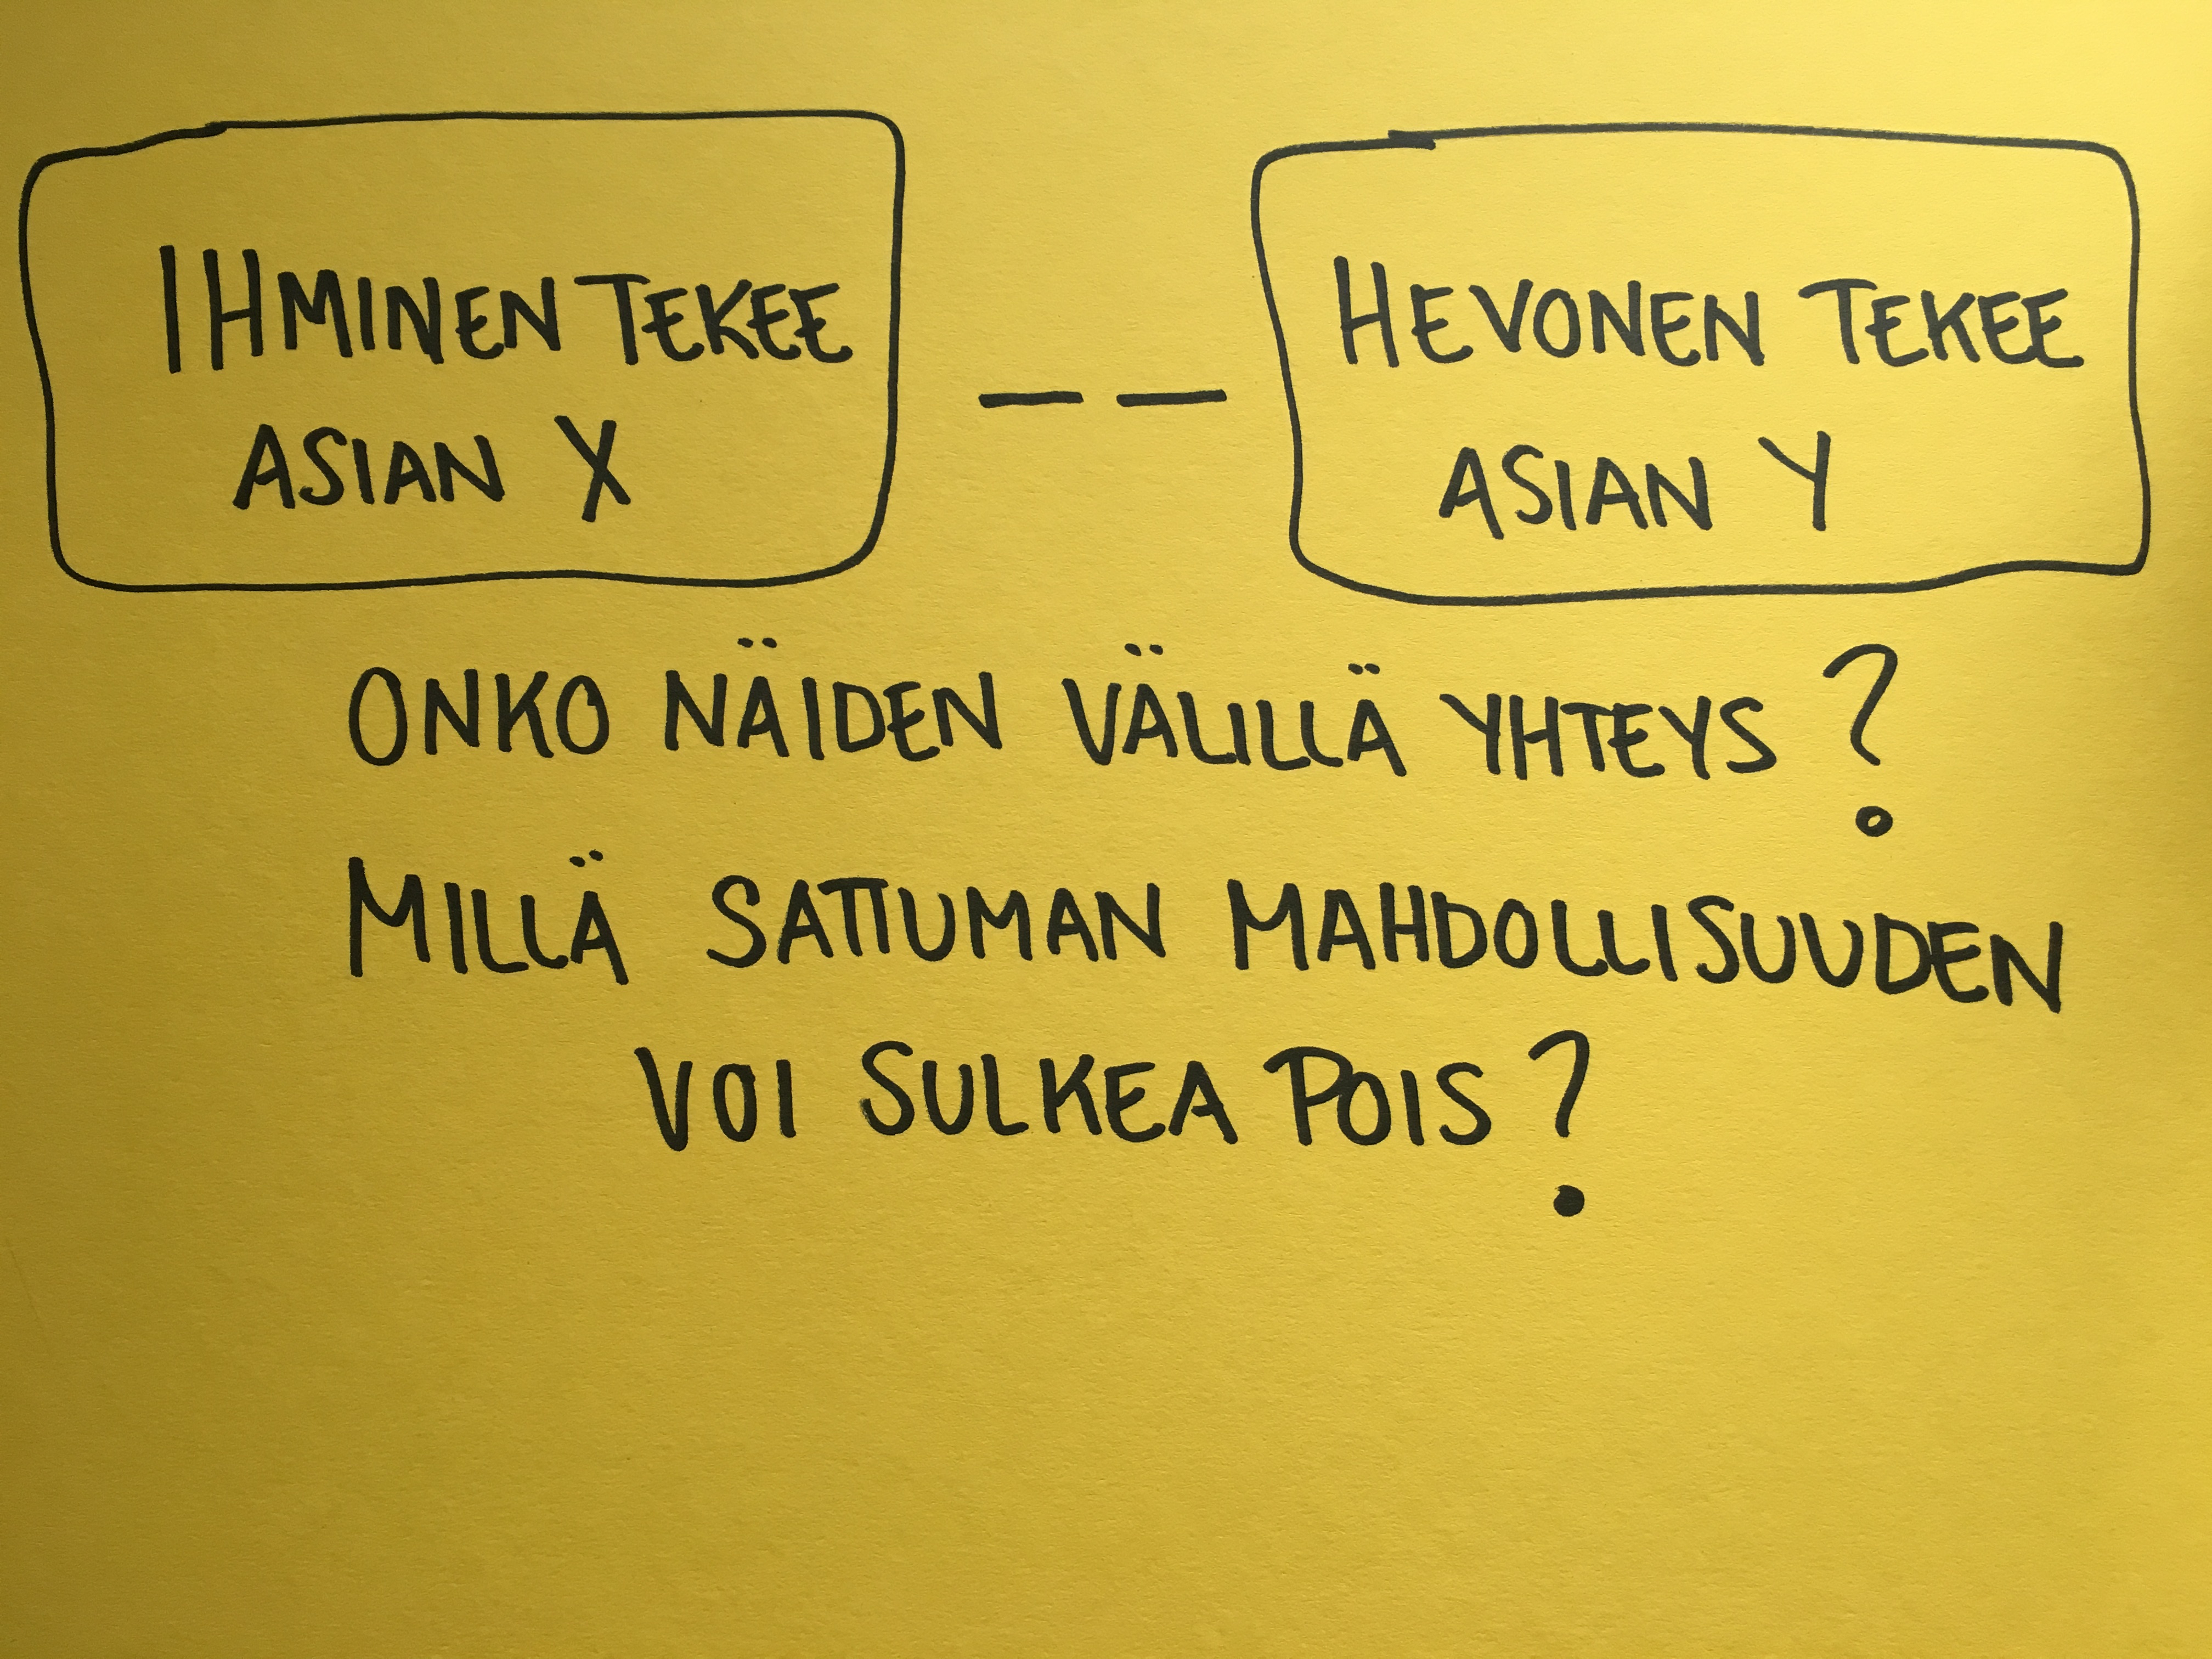 IHMINEN TEKEE
ASIAN X
HEVONEN TEKEE
ASIAN Y
ONKO NÄIDEN VÄLILLÄ YHTEYS?
MILLÄ SATTUMAN MAHDOLLISUUDEN
VOI SULKEA POIS?